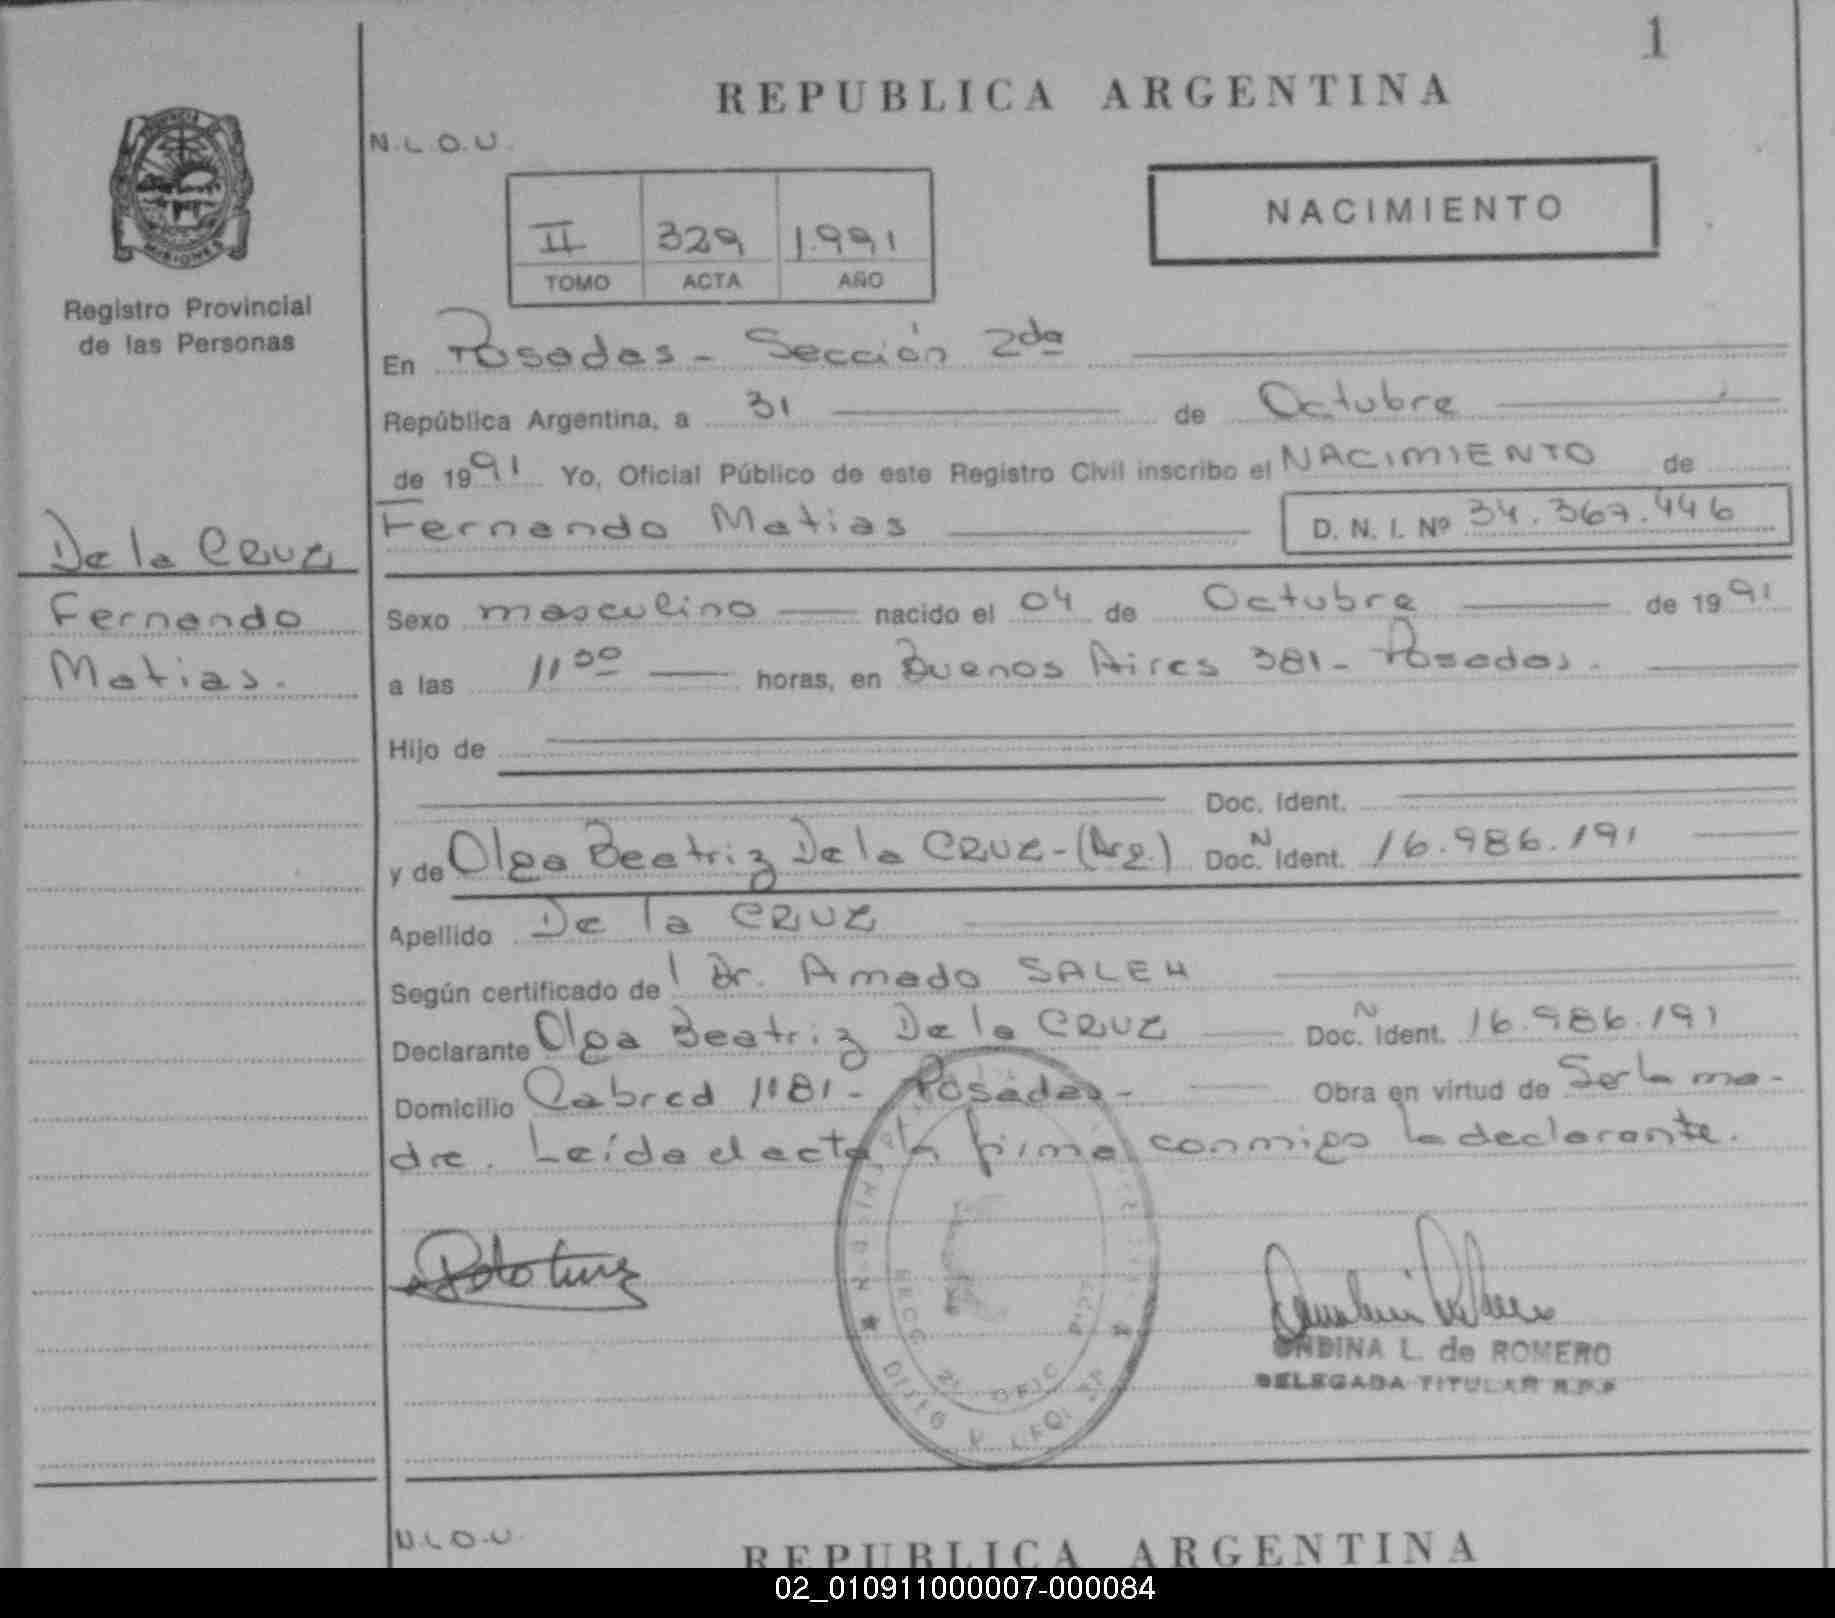 1
REPUBLICA ARGENTINA
N.L.O.U.
NACIMIENTO
II 329 1.991
TOMO ACTA AÑO
MISIONES
Registro Provincial
de las Personas
En Posadas - Sección 2da
República Argentina, a 31 de Octubre
de 1991 Yo, Oficial Público de este Registro Civil inscribo el NACIMIENTO de
Fernando Matias D. N. I. Nº 34.367.446
De la CRUZ
Fernando
Matias.
Sexo masculino nacido el 04 de Octubre de 1991
a las 11 00 horas, en Buenos Aires 381 - Posadas.
Hijo de
Doc. Ident.
y de Olga Beatriz De la CRUZ - (Arg.) Doc. N Ident. 16.986.191
Apellido De la CRUZ
Según certificado del Dr. Amado SALEH
Declarante Olga Beatriz De la CRUZ Doc. N Ident. 16.986.191
Domicilio Cabred 1181 - Posadas - Obra en virtud de Ser la ma-
dre. Leída el acta la firma conmigo la declarante.
ONDINA L. de ROMERO
DELEGADA TITULAR R.P.P
N.L.O.U.
REPUBLICA ARGENTINA
02_010911000007-000084